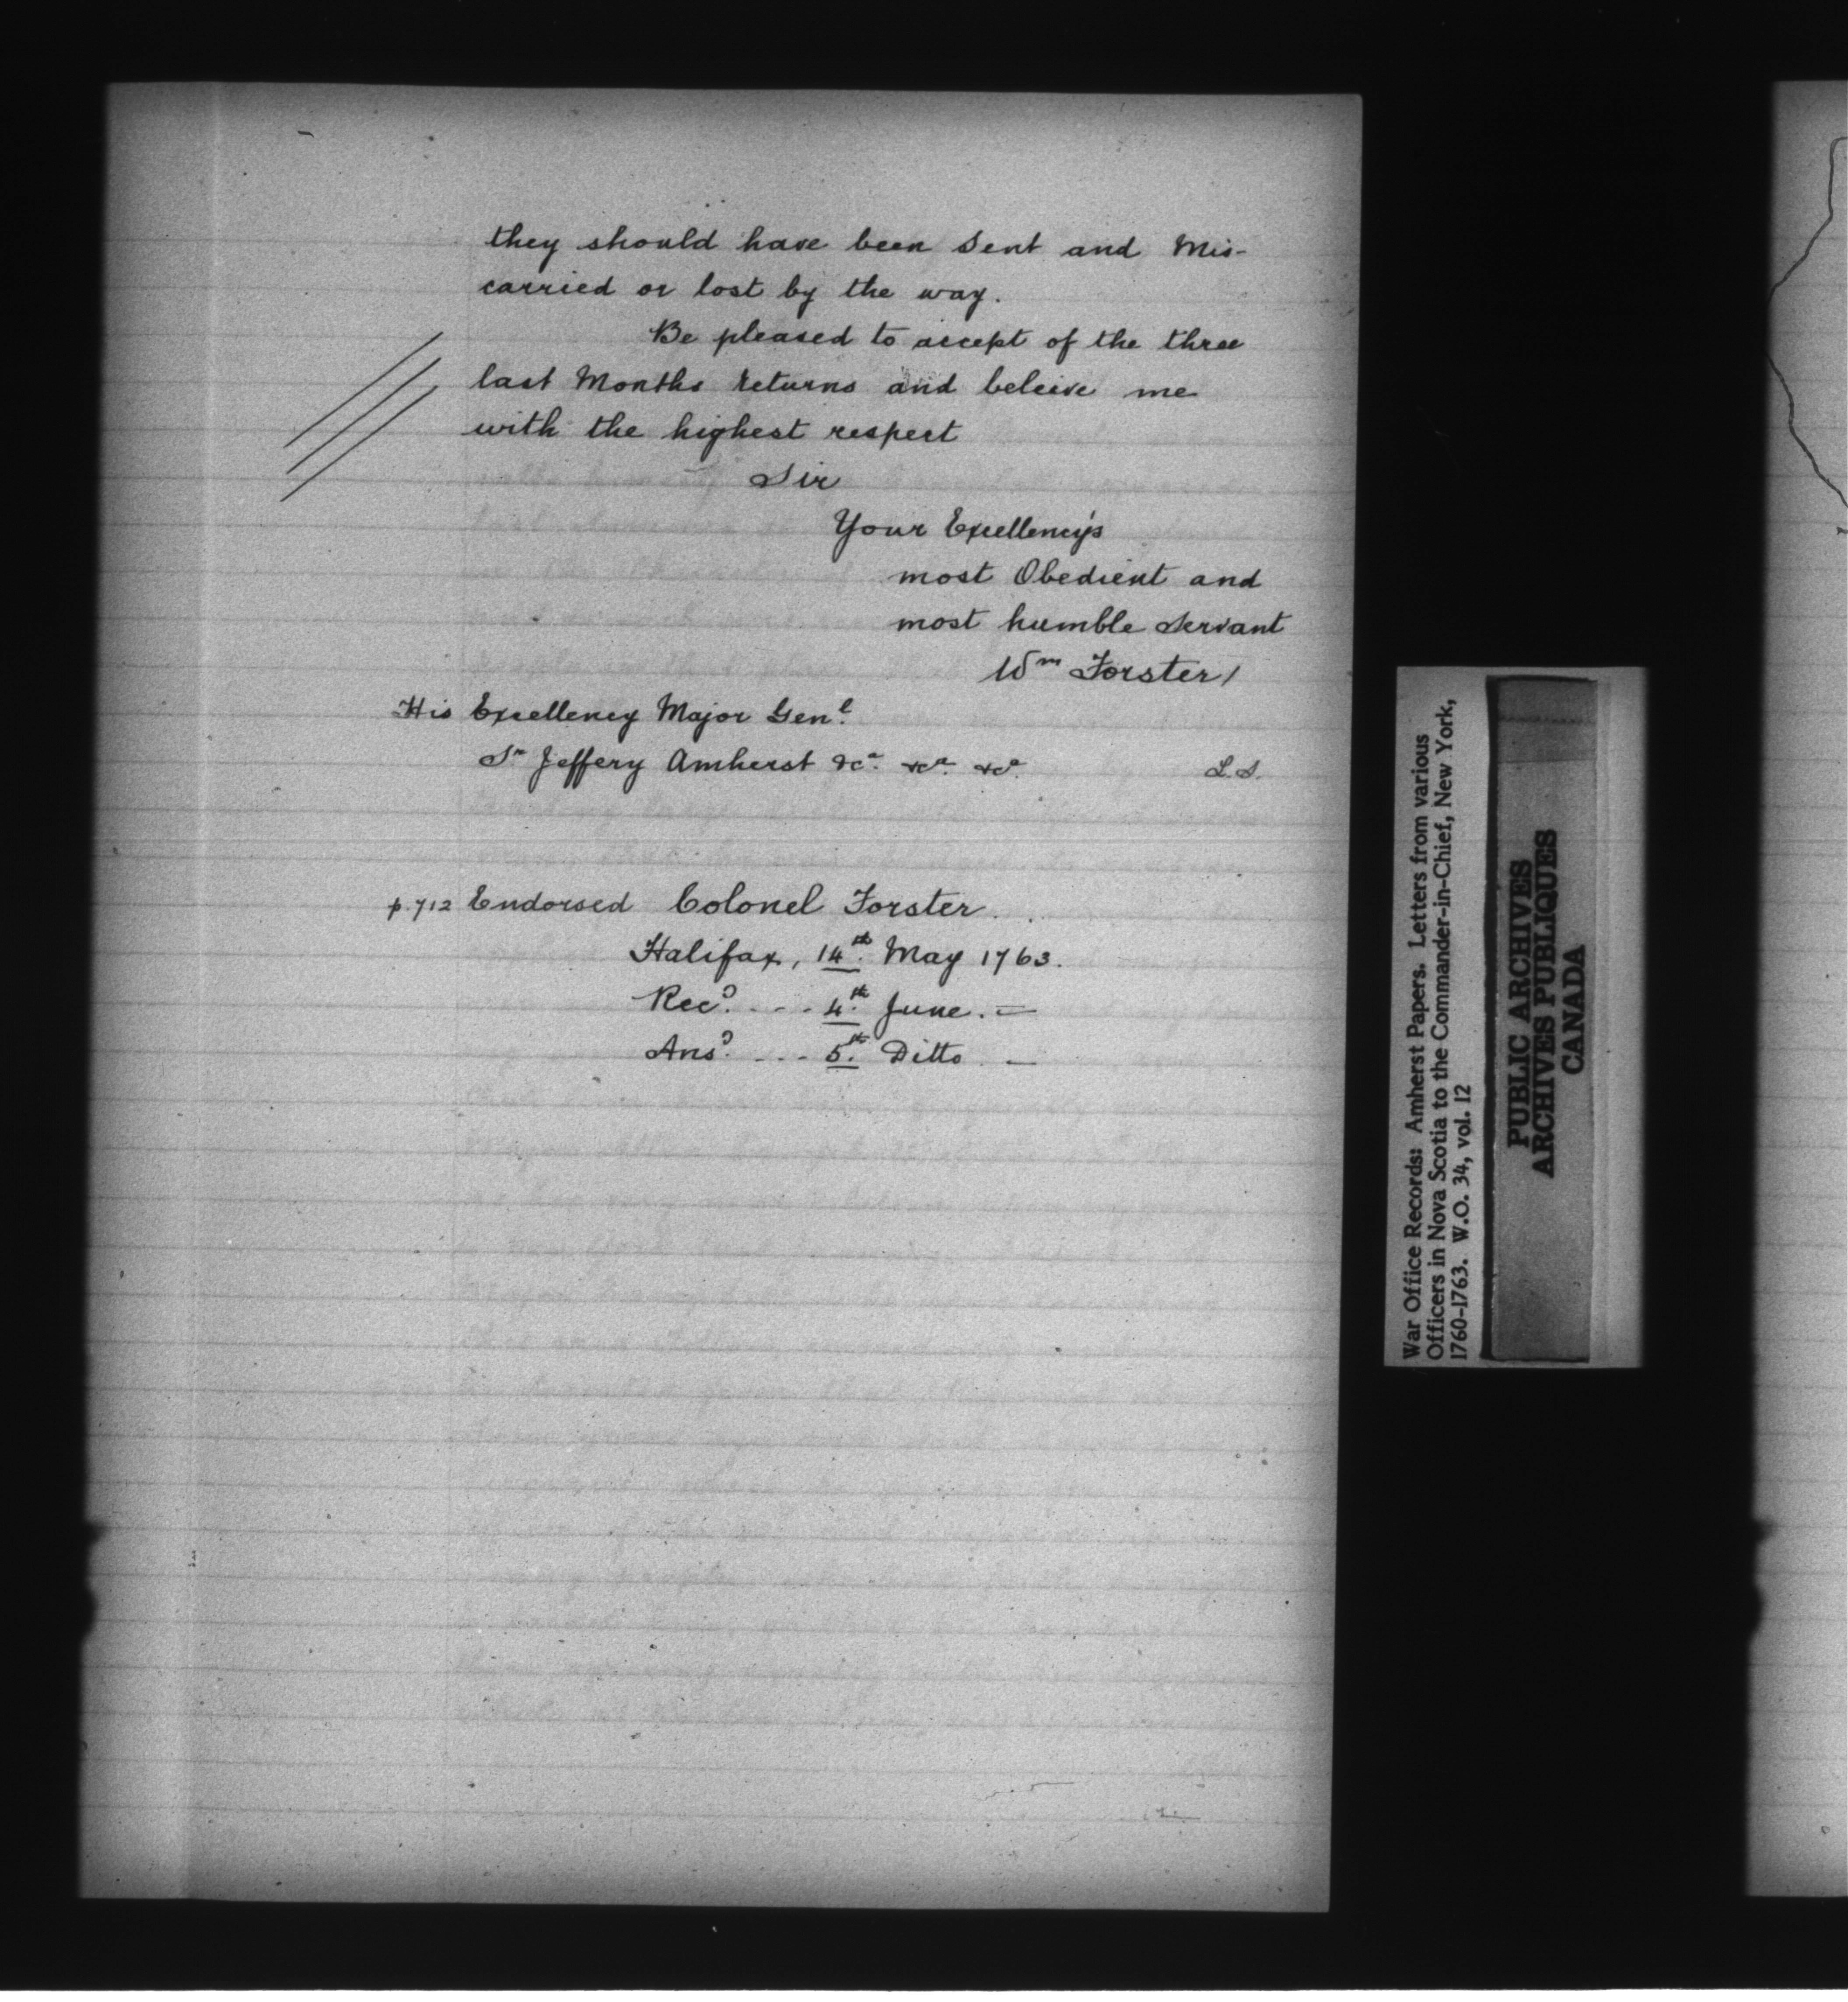 they should have been Sent and Mis-
carried or lost by the way.
Be pleased to accept of the three
last Months returns and beleive me
with the highest respect
Sir
Your Excellency's
most Obedient and
most humble Servant
Wm Forster/
His Excellency Major Genl.
Sr Jeffery Amherst &ca. &ca. &ca.
L.S.
p.712 Endorsed Colonel Forster.
Halifax, 14th. May 1763.
Recd. - - - 4th. June. —
Ansd. - - - 5th. Ditto —
War Office Records: Amherst Papers. Letters from various
Officers in Nova Scotia to the Commander-in-Chief, New York,
1760-1763. W.O. 34, vol. 12
PUBLIC ARCHIVES
ARCHIVES PUBLIQUES
CANADA